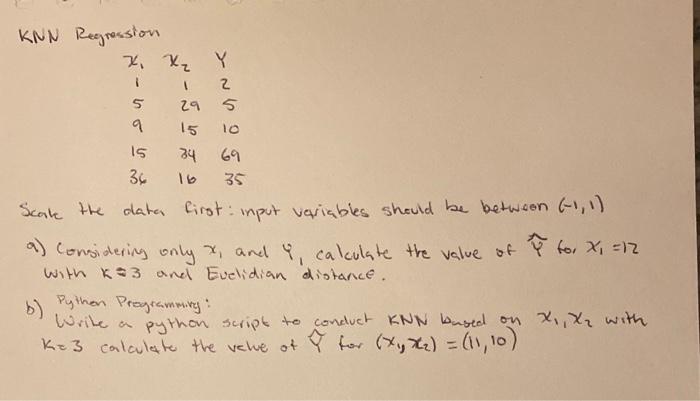 KNN Regression
x₁ x₂ Y
1 1 2
5 29 5
9 15 10
15 34 69
36 16 35
Scale the data first: input variables should be between (-1,1)
a) Considering only x₁ and Y, calculate the value of Ŷ for x₁ =12
with K=3 and Euclidian distance.
b) Python Programming:
Write a python script to conduct KNN based on x₁, x₂ with
K=3 calculate the value of Ŷ for (x₁, x₂) = (11,10)